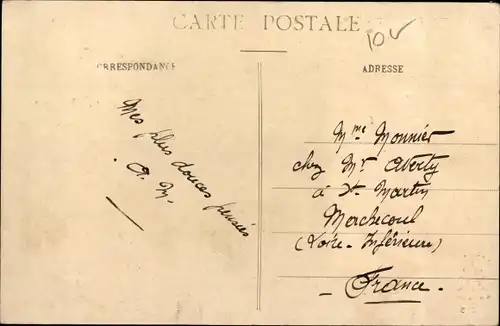 CARTE POSTALE
10v
CORRESPONDANCE
ADRESSE
Mes plus douces pensées
A. M.
Mme Monnier
chez Mr Aberty
à St Martin
Machecoul
(Loire-Inférieure)
- France -